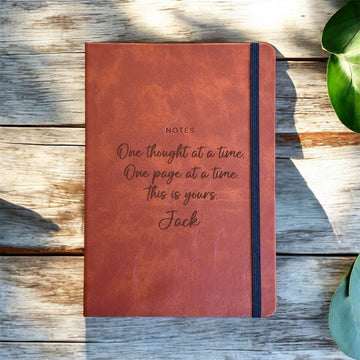 NOTES
One thought at a time,
One page at a time.
This is yours.
Jack